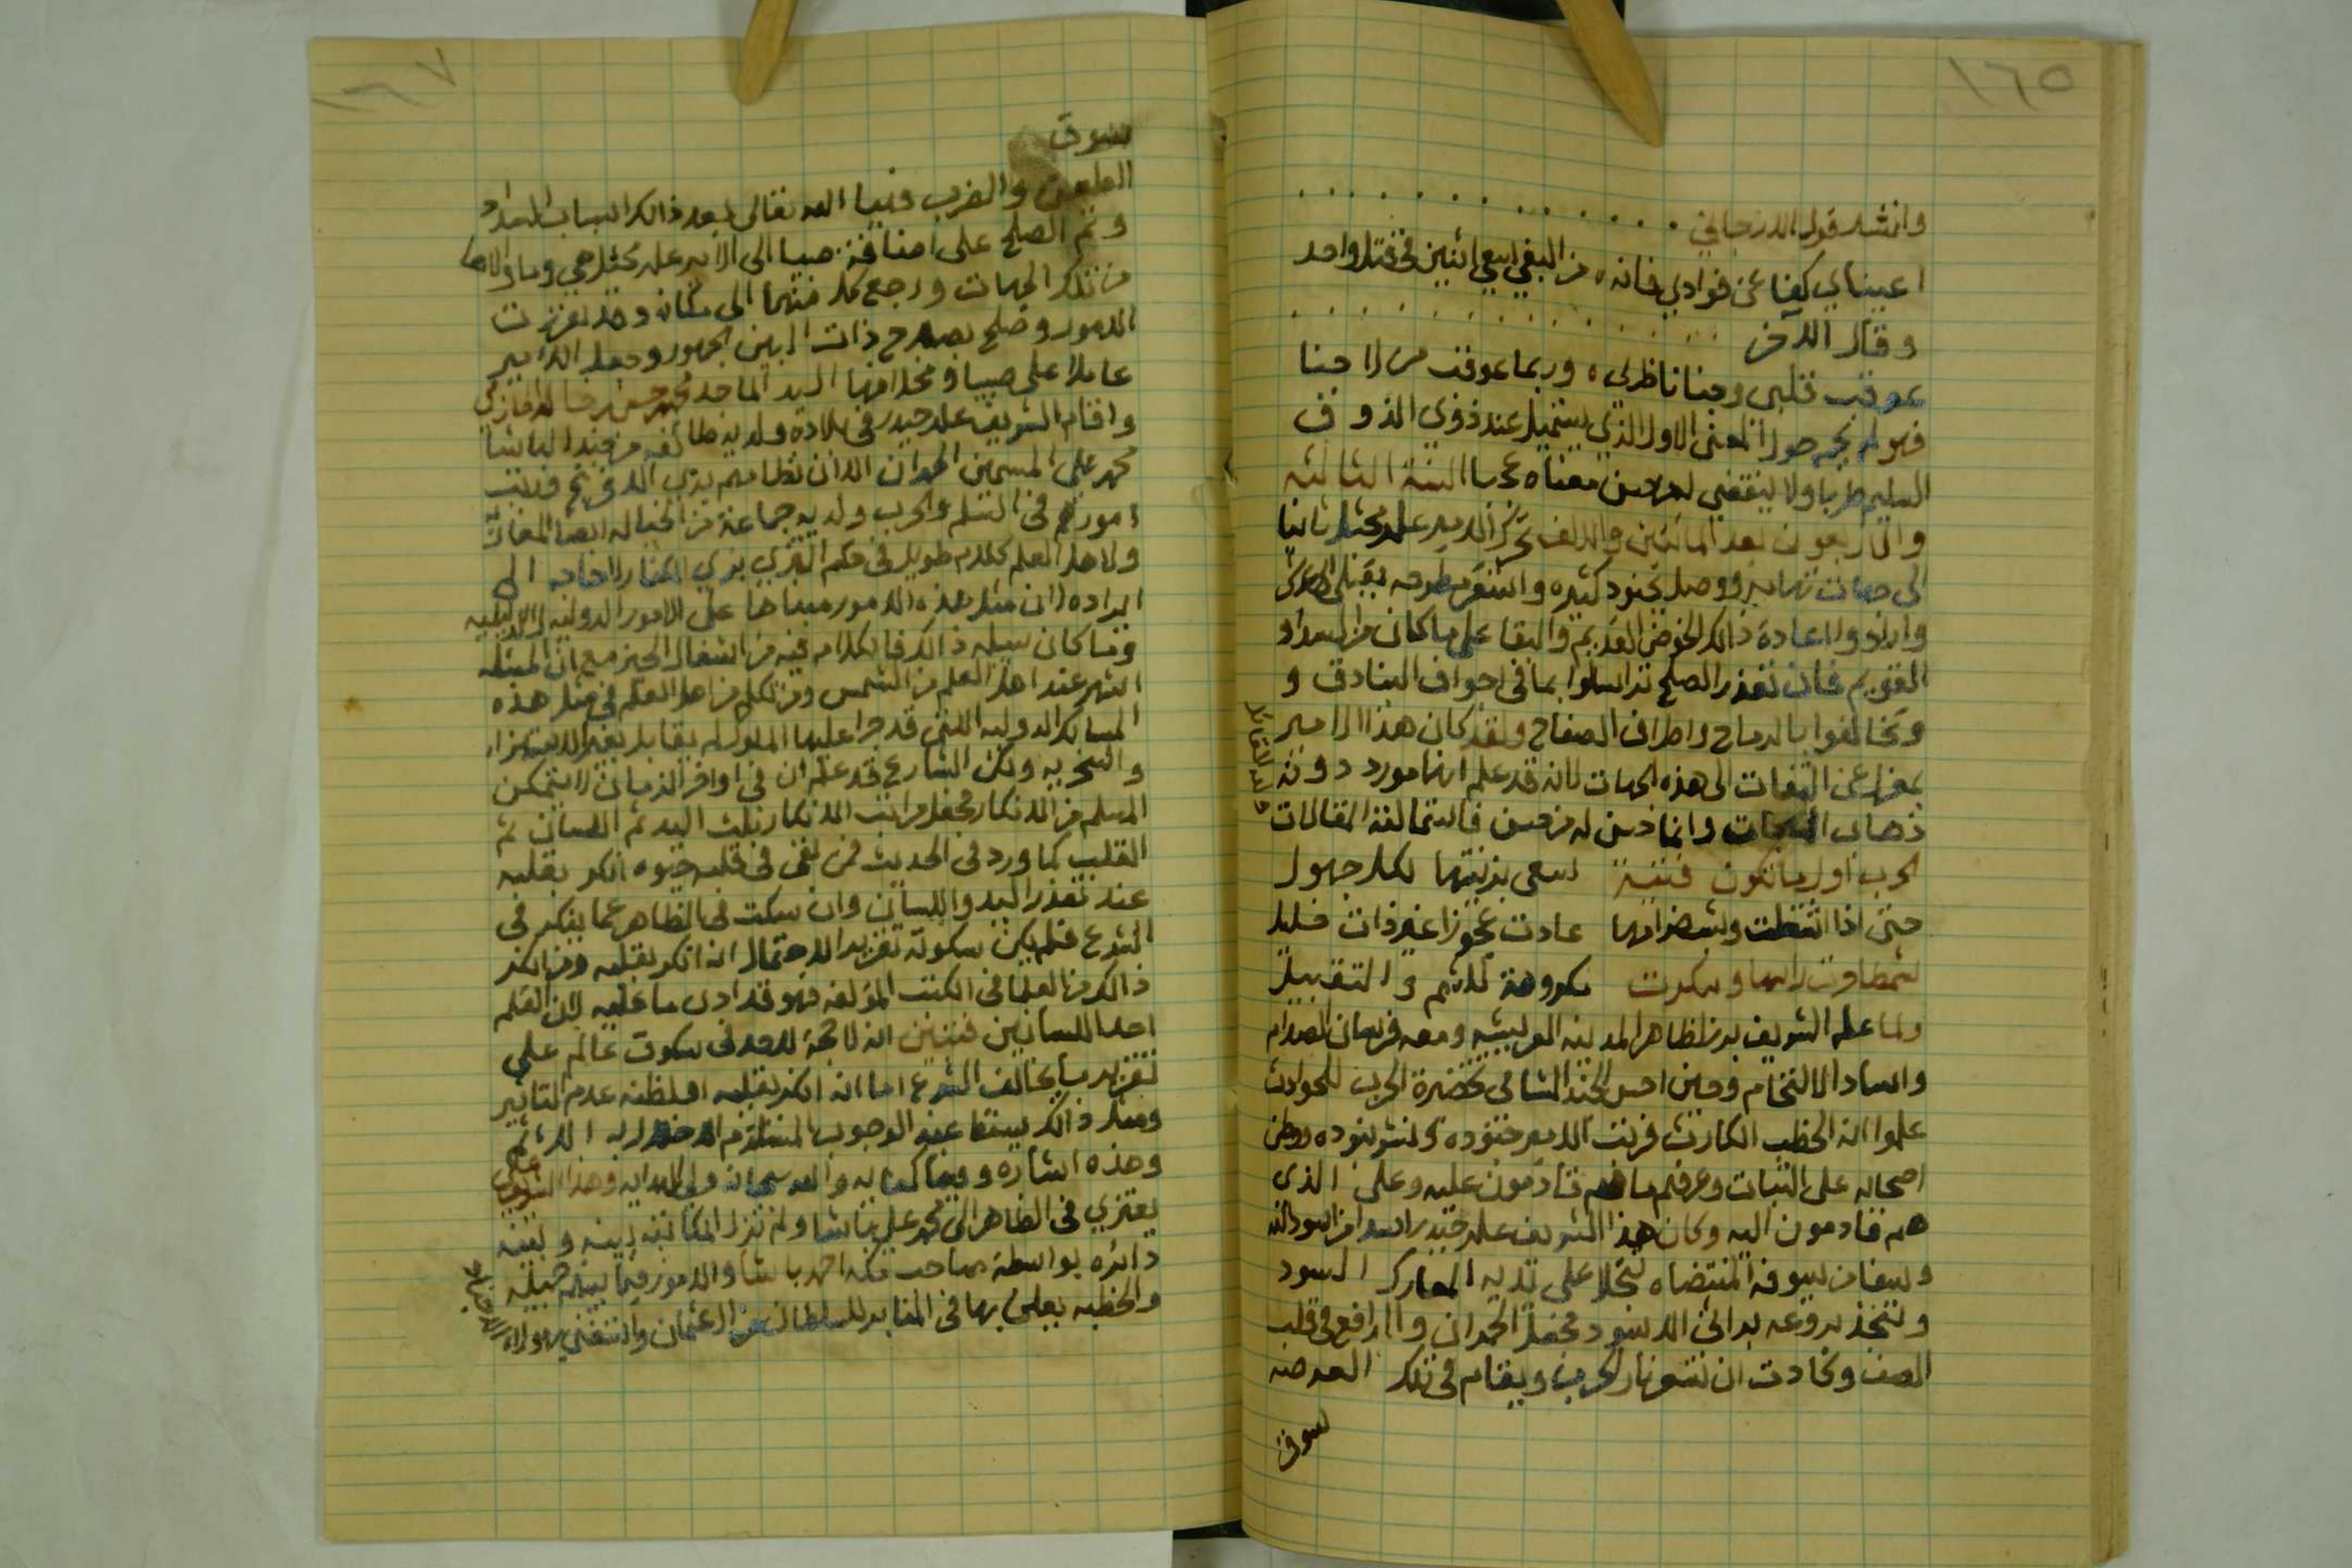 ١٦٥
وانشد قول الارجاني
اعيناي كفا عن فوادي فانه من البغي سعي اثنين في قتل واحد
وقال الاخر
عوقب قلبي وجنا ناظري وربما عوقب من لا جنا
فهو لم يحم حول المعنى الاول الذي يستميل عند ذوي الذوق
السليم طربا ولا ينقضي لحسن معناه عجبا السنة الثالثة
والاربعون بعد المائتين والالف تحرك الامير علي مجثل ثانيا
الى جهات تهامة ووصل بجنود كثيره واستقر
وارادوا اعادة ذالك الخوض القديم والبقا على ما كان من السداد
القويم فان تعذر الصلح تراسلوا بما في اجواف البنادق و
وتخالفوا بالرماح واطراف الصفاح ولقد كان هذا الامير
بمعزل عن التفات الى هذه الجهات لانه قد علم انها مورد دونه
ذهاب المهجات وانما حسن له من حسن فاستماله المقالات
ولله القائل
الحرب اول ما تكون فتية تسعى بزينتها لكل جهول
حتى اذا اشتعلت وشب ضرامها عادت عجوزا غير ذات خليل
شمطا جزت راسها وتنكرت مكروهة للشم والتقبيل
ولما علم الشريف برز لظاهر المدينه العريشيه ومعه فرسان الصدام
واساد الالتحام وحين احس الجند الشامي بحضرة الحرب للحوادث
علموا انه الخطب الكارث فرتب الامير جنوده ونشر بنوده ووطن
اصحابه على الثبات وعرفهم ما هم قادمون عليه وعلى الذي
هم قادمون اليه وكان هذا الشريف علي حيدر اسدا من اسود الله
وسيفا من سيوفه المنتضاه تنجلا على يديه المعارك السود
وتتخذ بروعه براثن الاسود فجعل الحمران والمدافع في قلب
الصف وكادت ان تستعر نار الحرب ويقام في تلك العرصه
سوق
١٦٧
سوق
الطعن والضرب فهيا الله تعالى بعد ذالك اسباب السداد
وتم الصلح على اضافة صبيا الى الامير علي مجثل هي وما والاها
من تلك الجهات ورجع كل منهما الى مكانه وقد تعززت
الامور وصلح بصلاح ذات البين الجمهور وجعل الامير
عاملا على صبيا ومخلافها السيد الماجد محمد حسن بن خالد الحازمي
واقام الشريف علي حيدر في بلاده ولديه طائفه من جند الباشا
محمد علي المسمين الحمران الذان نظامهم بزي الافرنج وترتيب
امورهم في السلم والحرب ولديه جماعة من الخياله ايضا المغاربة
ولاهل العلم كلام طويل في حكم التزي بزي الكفار لا حاجه الى
ايراده لان مثل هذه الامور مبناها على الامور الدوليه لا الدينيه
وما كان سبيله ذالك فالكلام فيه من اشغال الحيز مع ان المسئله
اشهر عند اهل العلم من الشمس ومن تكلم من اهل العلم في مثل هذه
المسالك الدوليه التي قد جرا عليها الملوك لم يقابل بغير الاستهزاء
والسخريه ولكن الشارع قد علم ان في اواخر الزمان لا يتمكن
المسلم من الانكار فجعل مراتب الانكار ثلاث اليد ثم اللسان ثم
القلب كما ورد في الحديث فمن بقى في قلبه حيوه انكر بقلبه
عند تعذر اليد واللسان وان سكت في الظاهر عما ينكر في
الشرع فلم يكن سكوته تقريرا لاحتمال انه انكر بقلبه ومن انكر
ذالك من العلما في الكتب المؤلفه فهو قد ادى ما عليه لان القلم
احدا اللسانين فتبين انه لا حجة لاحد في سكوت عالم على
تقرير ما يخالف الشرع اما انه انكر بقلبه او لظنه عدم التاثير
ومثل ذالك يسقط عنه الوجوب المستلزم الاخلال به الاثم
وهذه اشاره وفيها كفايه والله سبحانه ولي الهدايه وهذا الشريف علي
يعتزي في الظاهر الى محمد علي باشا ولم تزل المكاتبه بينه وبينه
دائره بواسطة صاحب مكه احمد باشا والامور فيما بينهم جميله
والخطبه يعلن بها في المنابر للسلطان من ال عثمان